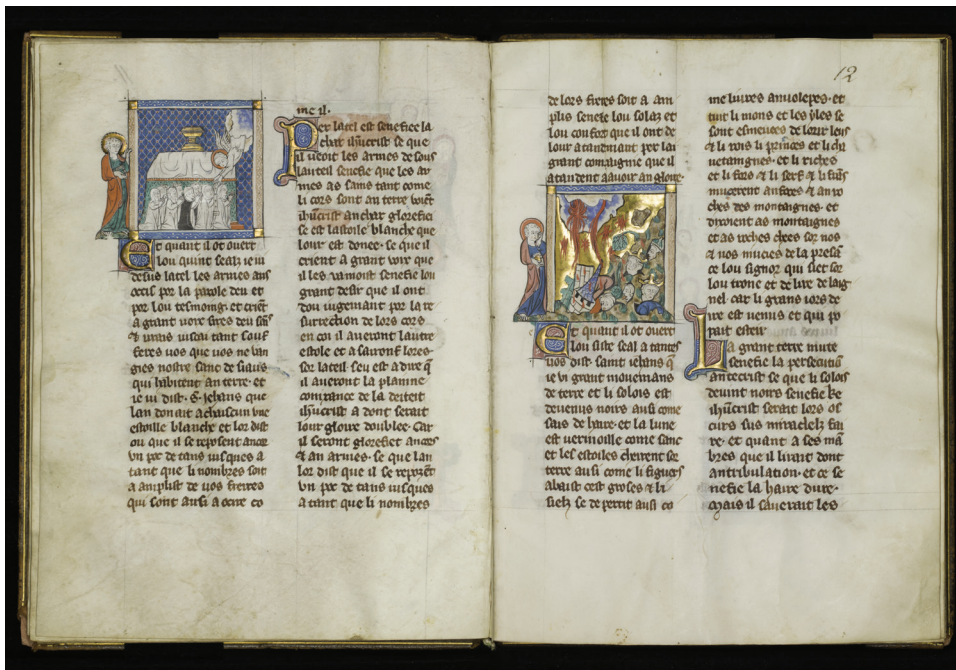 Et quant il ot ouert
lou quint seal ie ui
desus latel les armes
occis por la parole deu et
por lou tesmoing et crient
a grant uoix sires deu
& urais
freres uos que vos ne uan
gies nostre sanc de siaus
qui habitent an terre et
ie ui dist S. Jehans que
lan donait a chascun une
estoille blanche et lor dist
ou que il se reposent ancor
vn poc de tans iusques a
tant que li nombres soit
a amplist de uos freires
qui sont ausi a ocire co
me il.
Per latel est senefice la
char ihucrist se que
il ueoit les armes desous
lauteil senefie que les ar
mes as sains tant come
li cors sont an terre
ihucrist an char glorefi
se est lastoile blanche que
lour est donee se que il
crient a grant uoix que
il les uanoit senefie lou
grant desir que il ont
dou iugemant por la re
surrection de lors cors
en coi il aueront lautre
estole et a lores
sor lateil seu est a dire
il aueront la planme
de la deiteit
ihucrist a dont serait
lour gloire doublee Car
il seront glorefiet ancors
& an armes se que lan
lor dist que il se
vn poc de tans iusques
a tant que li nombres
12
de lors freres soit a am
plis senefie lou solaz et
lou confort que il ont de
lour atandant por la
grant conpaignie que il
atandent a auoir an gloire
Et quant il ot ouert
lou siste seal a tantes
uos dist saint iehans
ie vi grant mouemans
de terre et li solois est
deuenus noirs ausi come
sais de haire et la lune
est uermoille come sanc
et les estoiles cheirent sor
terre ausi come li figuers
abaist ces groses & li
cielz se departit ausi co
me liures anuolepes et
tuit li mons et les yles se
sont esmeues de lour leus
& li rois li princes et li
et li riches
et li fors & li serf & li
mucerent an foses & an ro
ches des montaignes et
dixoient as montaignes
et as roches chees sor nos
& nos mucies de la
ce lou signor qui siet sor
lou trone et de lire de laig
nel car li grans iors de
ire est uenus et qui po
rait esteir
La grant terre mute
senefie la persecution
antecrist se que li solois
deuint noirs senefie ke
ihucrist serait lors os
curs sus miracles fai
re et quant a ses man
bres que il lirant dont
an tribulation et ce se
nefie la haire dure
Mais il sauerait les